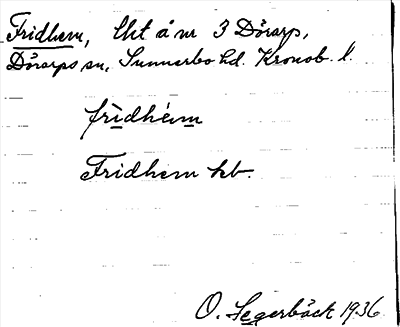 Fridhem, lht å nr 3 Dörarp,
Dörarps sn, Sunnerbo hd. Kronob. l.
frìdhém
Fridhem kb.
O. Segerbäck 1936